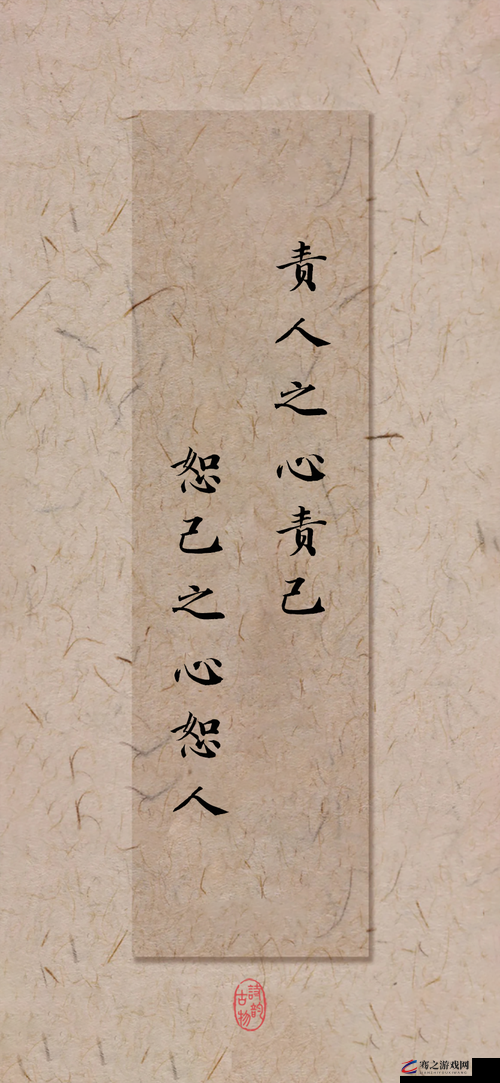 责人之心责己
恕己之心恕人
詩韵
古物
骞之游戏网